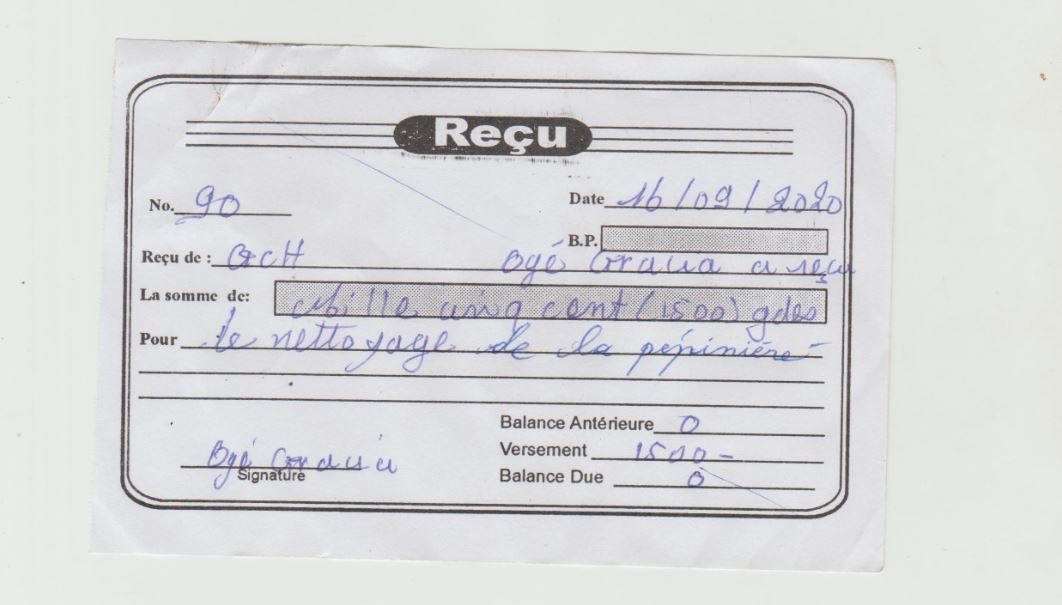 Reçu
No. 90
Date 16/09/2020
B.P.
Reçu de : GCH Ogé Gracia a reçu
La somme de: Mille cinq cent (1500) gdes
Pour le nettoyage de la pépinière
Balance Antérieure 0
Versement 1500-
Balance Due 0
Ogé Gracia
Signature